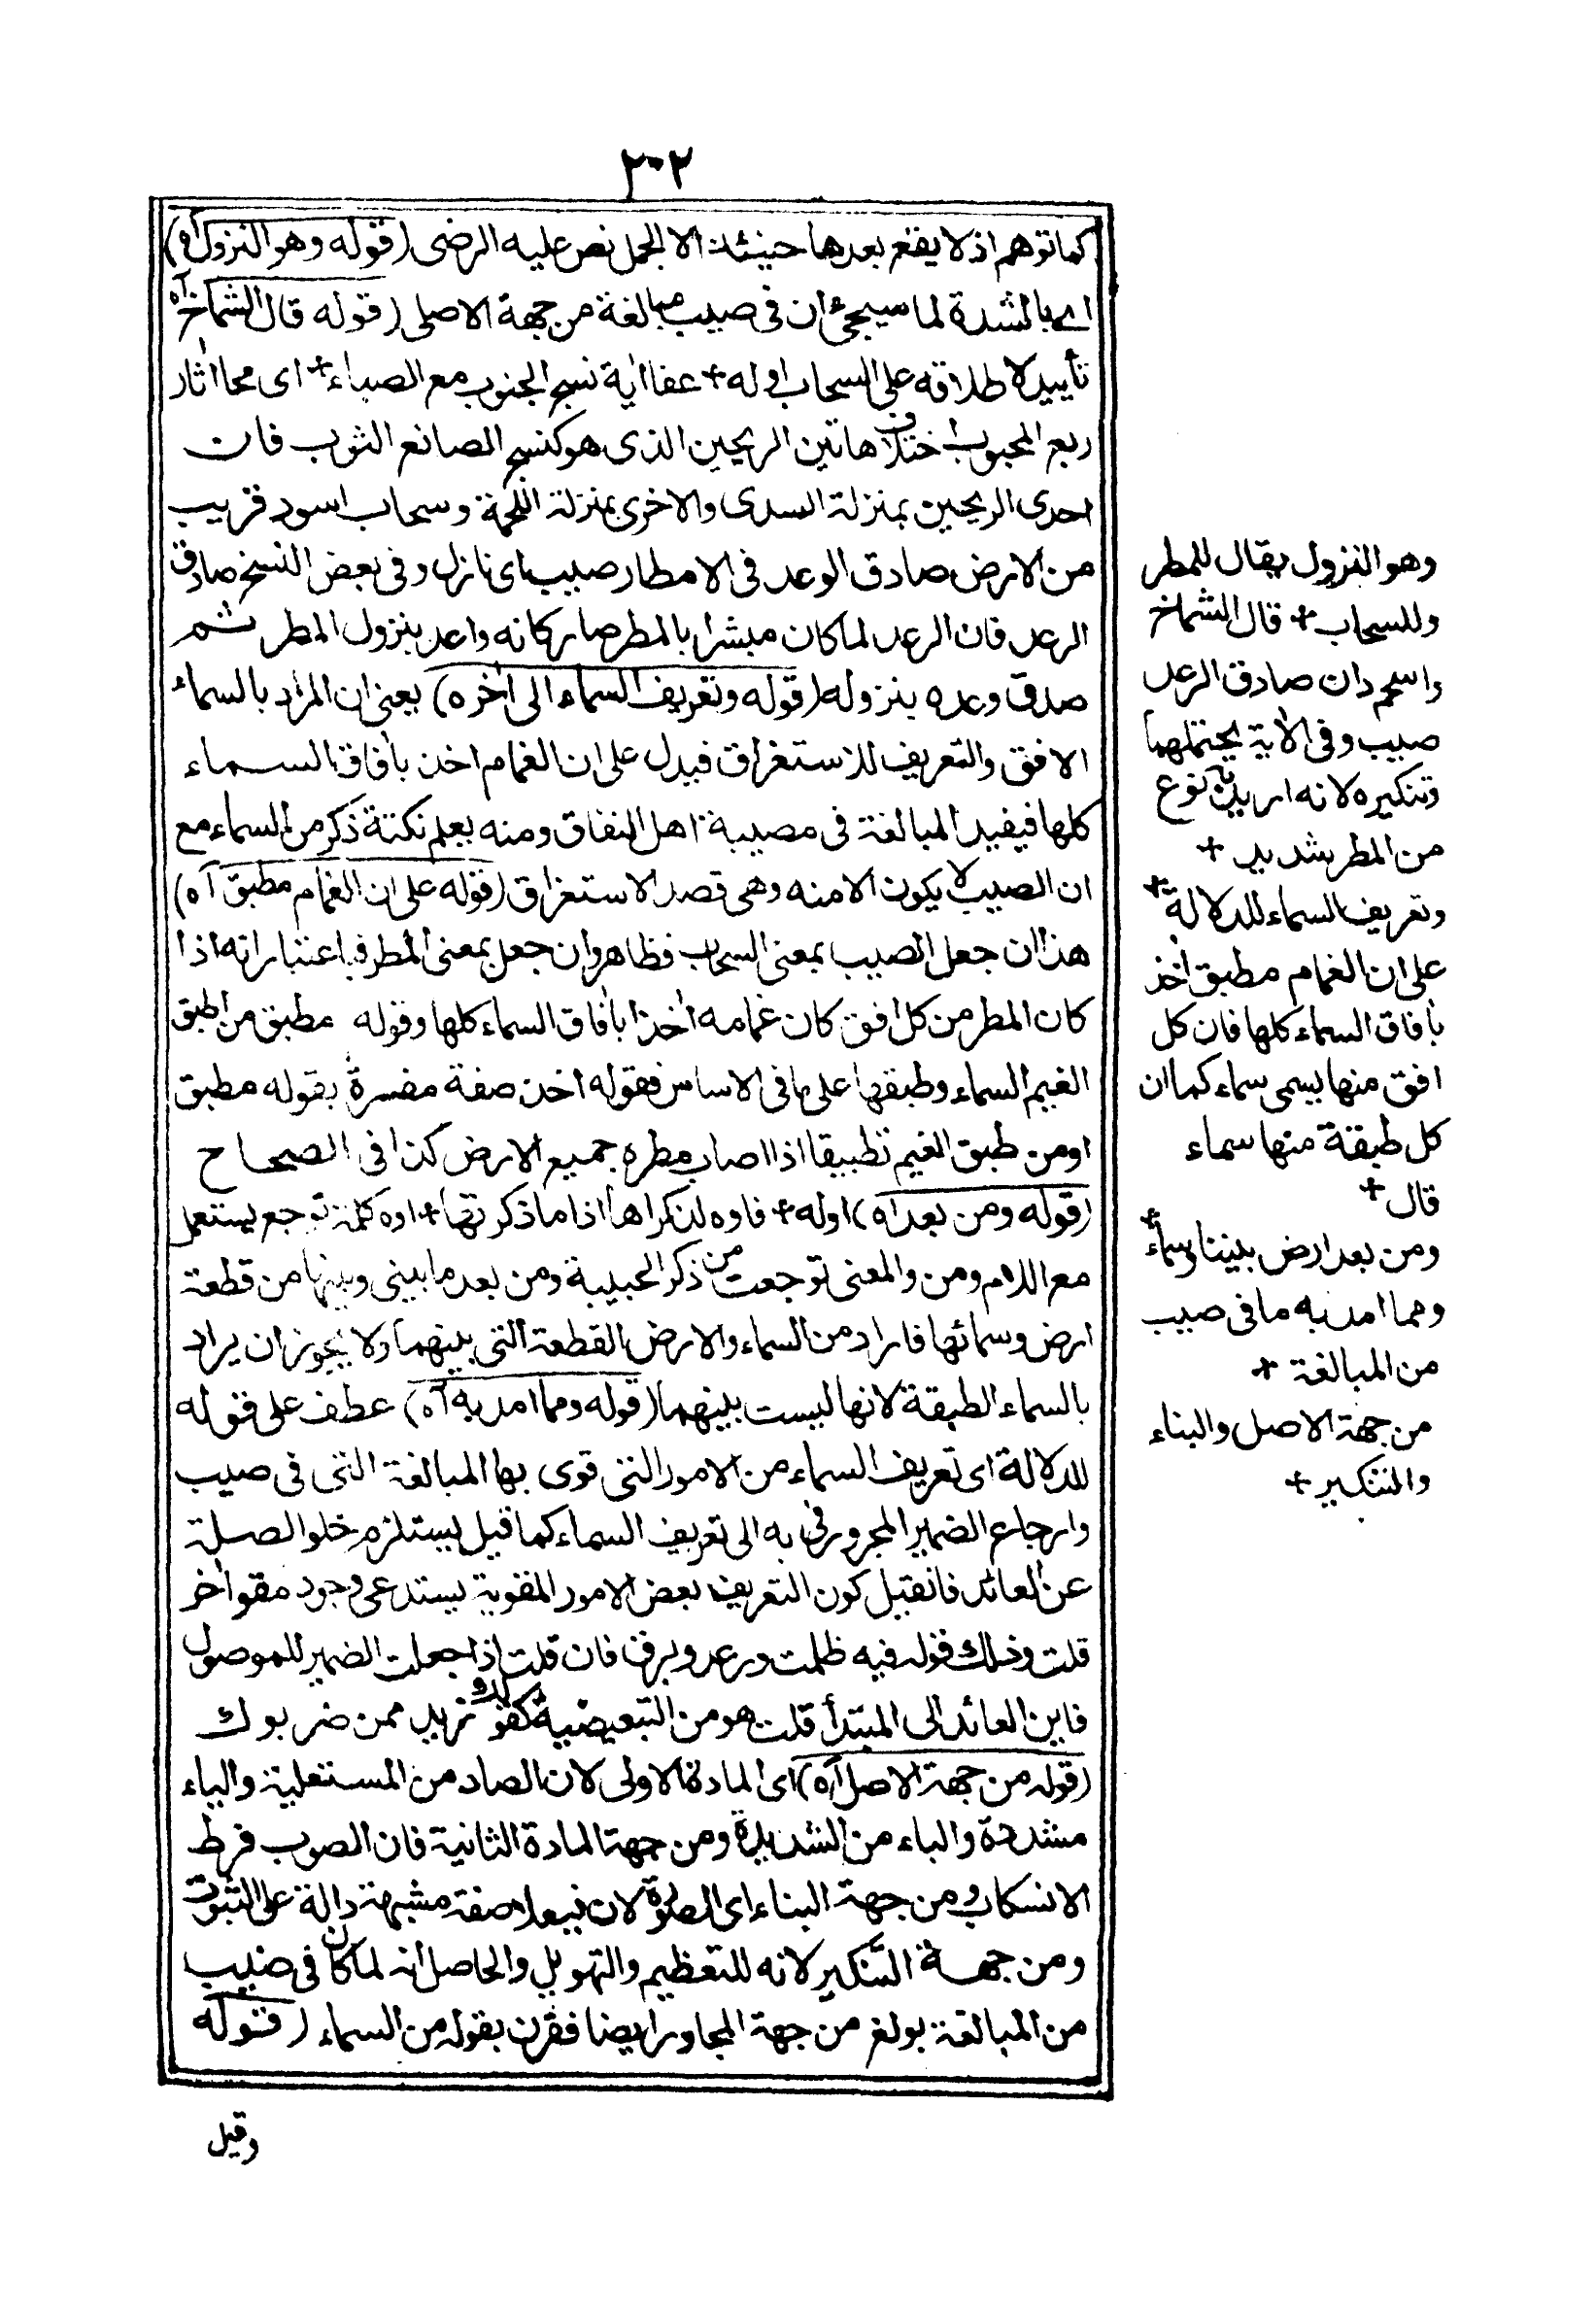 ٢٠٢
كما توهم اذ لا يقع بعدها حينئذ الا الجمل نص عليه الرضى (قوله وهو النزول آه)
اے بالشدة لما سيجئ ان فى صيب مبالغة من جهة الاصل (قوله قال الشماخ آه)
تأييد لاطلاقه على السحاب اوله + عفا اية نسج الجنوب مع الصباء + اى محا اثار
ربع المحبوب اختلاف هاتين الريحين الذى هو كنسج الصانع الثوب فان
احدى الريحين بمنزلة السدى والاخرى بمنزلة اللحمة وسحاب اسود قريب
من الارض صادق الوعد فى الامطار صيب اى نازل وفى بعض النسخ صادق
الرعد فان الرعد لما كان مبشرا بالمطر صار كانه واعد بنزول المطر ثم
صدق وعده بنزوله (قوله وتعريف السماء الى اٰخره) يعنى ان المراد بالسماء
الافق والتعريف للاستغراق فيدل على ان الغمام اخذ باٰفاق السماء
كلها فيفيد المبالغة فى مصيبة اهل النفاق ومنه يعلم نكتة ذكر من السماء مع
ان الصيب لا يكون الا منه وهى قصد الاستغراق (قوله على ان الغمام مطبق آه)
هذا ان جعل الصيب بمعنى السحاب فظاهر وان جعل بمعنى المطر فباعتبار انه اذا
كان المطر من كل افق كان غمامه اٰخذا باٰفاق السماء كلها وقوله مطبق من اطبق
الغيم السماء وطبقها على ما فى الاساس فقوله اخذ صفة مفسرة بقوله مطبق
او من طبق الغيم تطبيقا اذا اصاب مطره جميع الارض كذا فى الصحاح
(قوله ومن بعد آه) اوله + فاوه لذكراها اذا ما ذكرتها + اوه كلمة توجع يستعمل
مع اللام ومن والمعنى توجعت من ذكر الحبيبة ومن بعد ما بينى وبينها من قطعة
ارض وسمائها فاراد من السماء والارض القطعة التى بينهما ولا يجوز ان يراد
بالسماء الطبقة لانها ليست بينهما (قوله ومما امد به آه) عطف على قوله
للدلالة اى تعريف السماء من الامور التى قوى بها المبالغة التى فى صيب
وارجاع الضمير المجرور فى به الى تعريف السماء كما قيل يستلزم خلو الصلة
عن العائد فان قيل كون التعريف بعض الامور المقوية يستدعى وجود مقو اٰخر
قلت وذلك قوله فيه ظلمت ورعد وبرق فان قلت اذا جعلت الضمير للموصول
فاين العائد الى المبتدأ قلت هو من التبعيضية كقولك زيد ممن ضربوك
(قوله من جهة الاصل آه) اى المادة الاولى لان الصاد من المستعلية والياء
مشددة والباء من الشديدة ومن جهة المادة الثانية فان الصوب فرط
الانسكاب ومن جهة البناء اى الصورة لان فيعلا صفة مشبهة دالة على الثبوت
ومن جهة التنكير لانه للتعظيم والتهويل والحاصل انه لما كان فى صيب
من المبالغة بولغ من جهة المجاور ايضا فقرن بقوله من السماء (قوله
وقيل
وهو النزول يقال للمطر
وللسحاب + قال الشماخ
واسحم دان صادق الرعد
صيب وفى الاٰية يحتملهما
وتنكيره لانه اريد به نوع
من المطر شديد +
وتعريف السماء للدلالة +
على ان الغمام مطبق اٰخذ
باٰفاق السماء كلها فان كل
افق منها يسمى سماء كما ان
كل طبقة منها سماء
قال +
ومن بعد ارض بيننا وسماء +
ومما امد به ما فى صيب
من المبالغة +
من جهة الاصل والبناء
والتنكير +